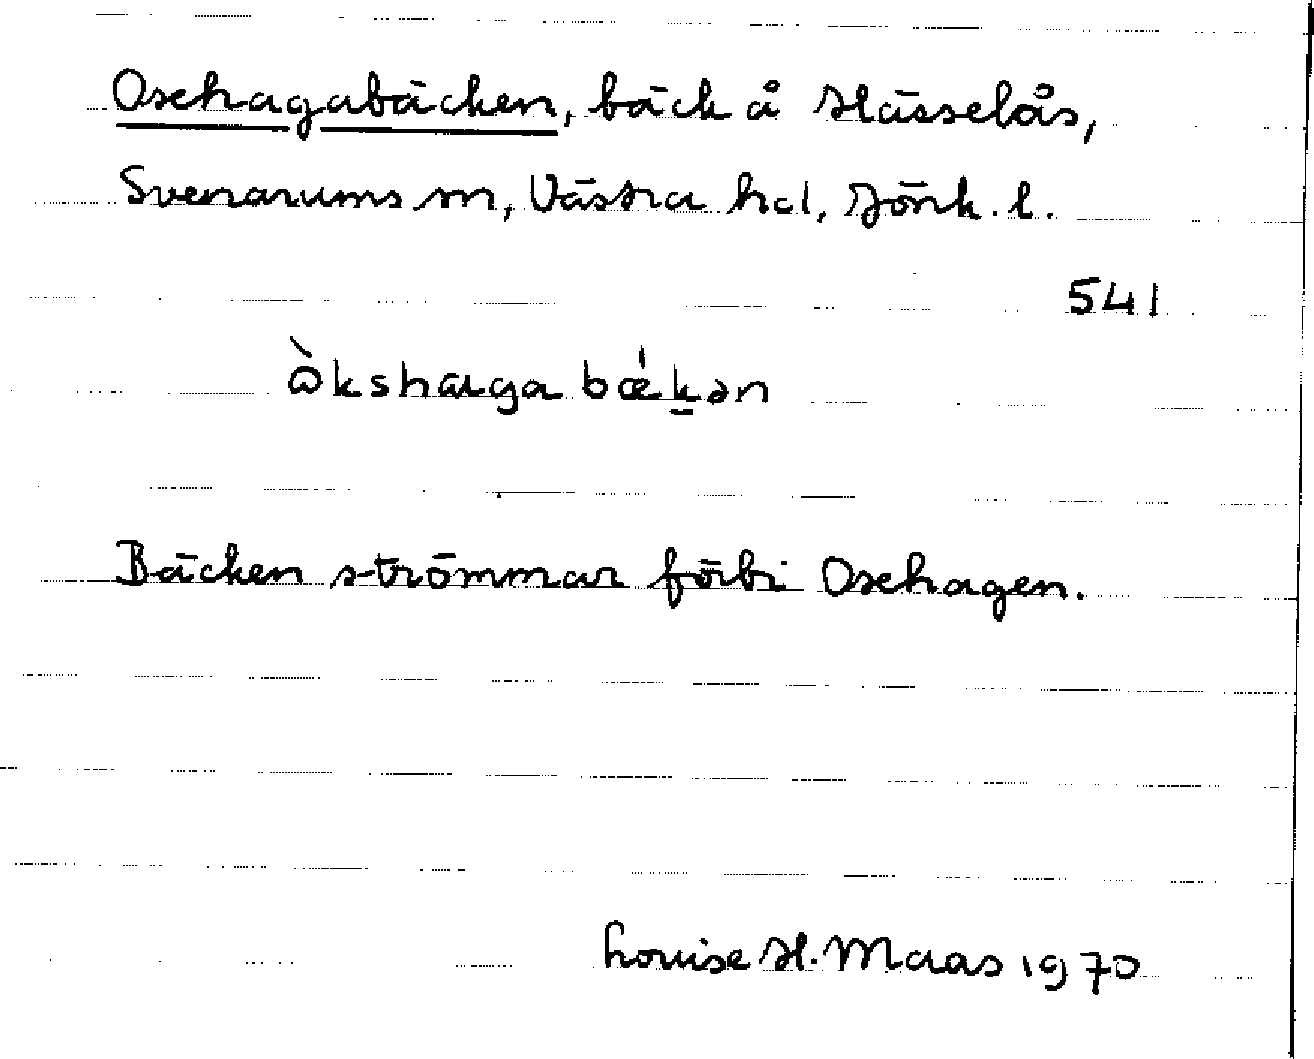 Oxhagabäcken, bäck å Hässelås,
Svenarums sn, Västra hd, Jönk. l.
541
ɷ̀kshaga bǽḵən
Bäcken strömmar förbi Oxhagen.
Louise H. Maas 1970